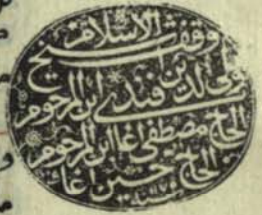 وقف شيخ الاسلام
ولى الدين افندى ابن المرحوم
الحاج مصطفى اغا ابن المرحوم
الحاج حسين اغا
سنة